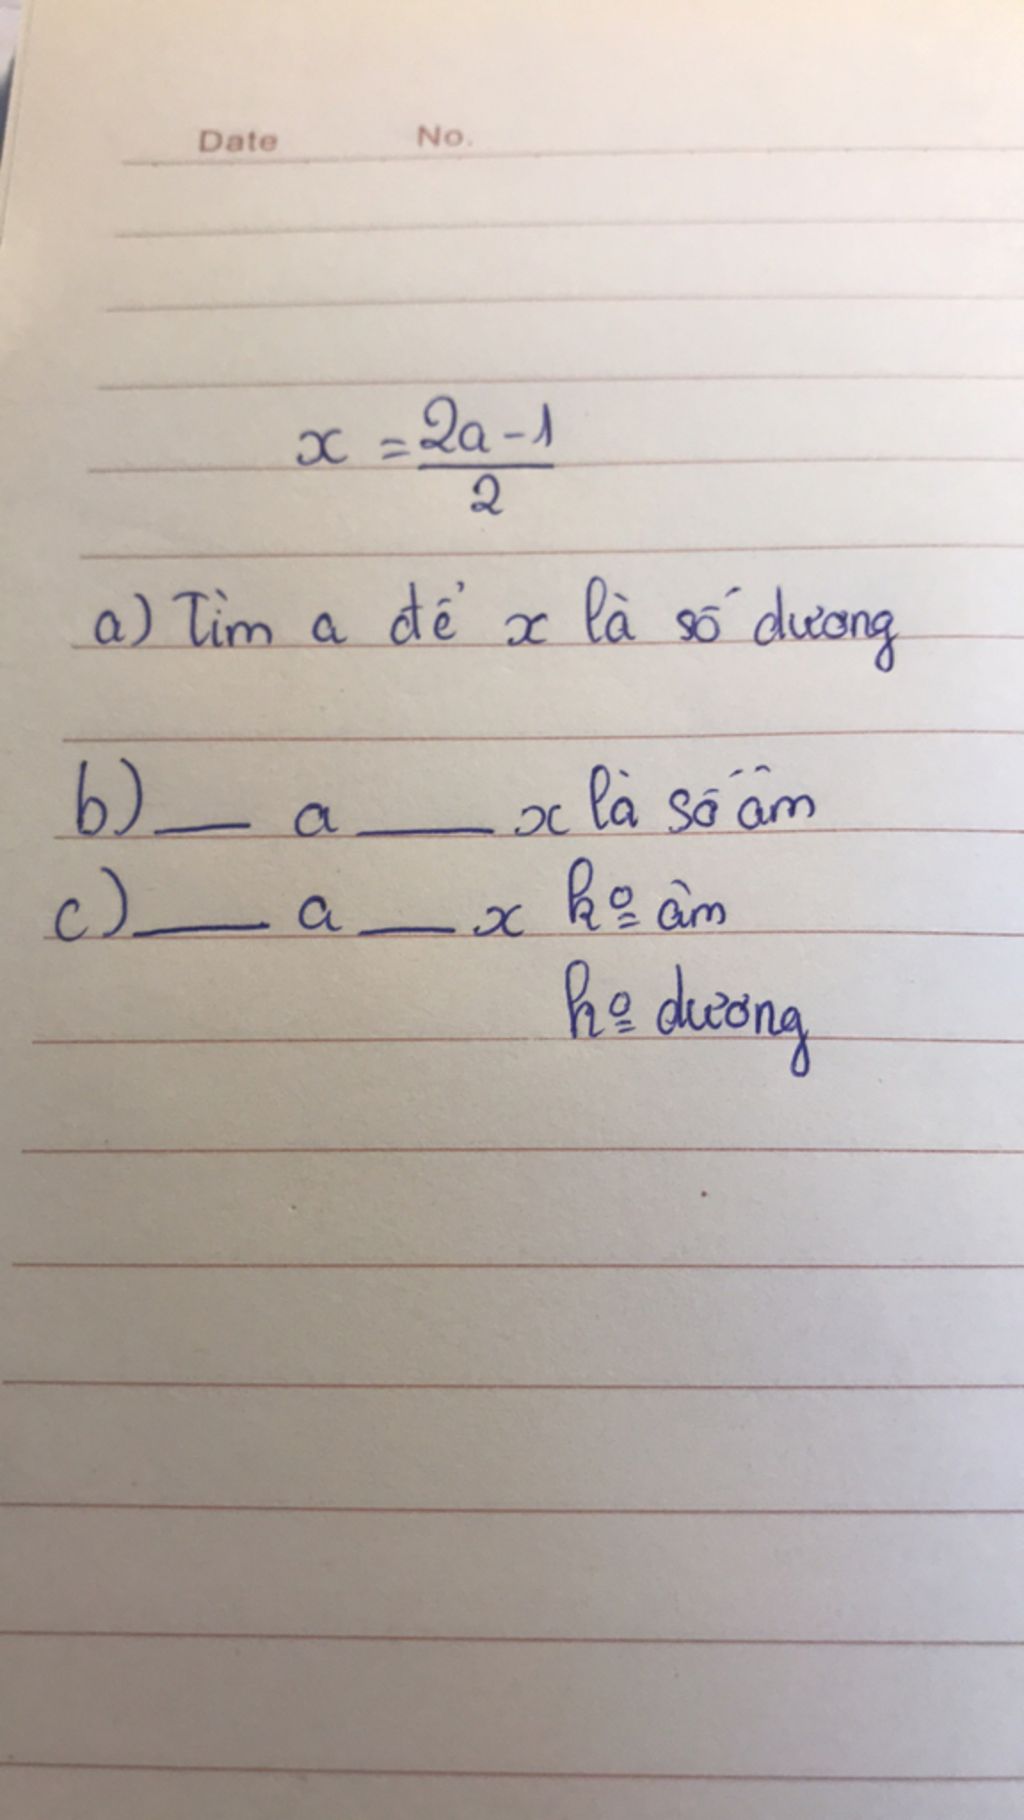 Date No.
x = \frac{2a-1}{2}
a) Tìm a để x là số dương
b) __ a __ x là số âm
c) __ a __ x kº âm
kº dương